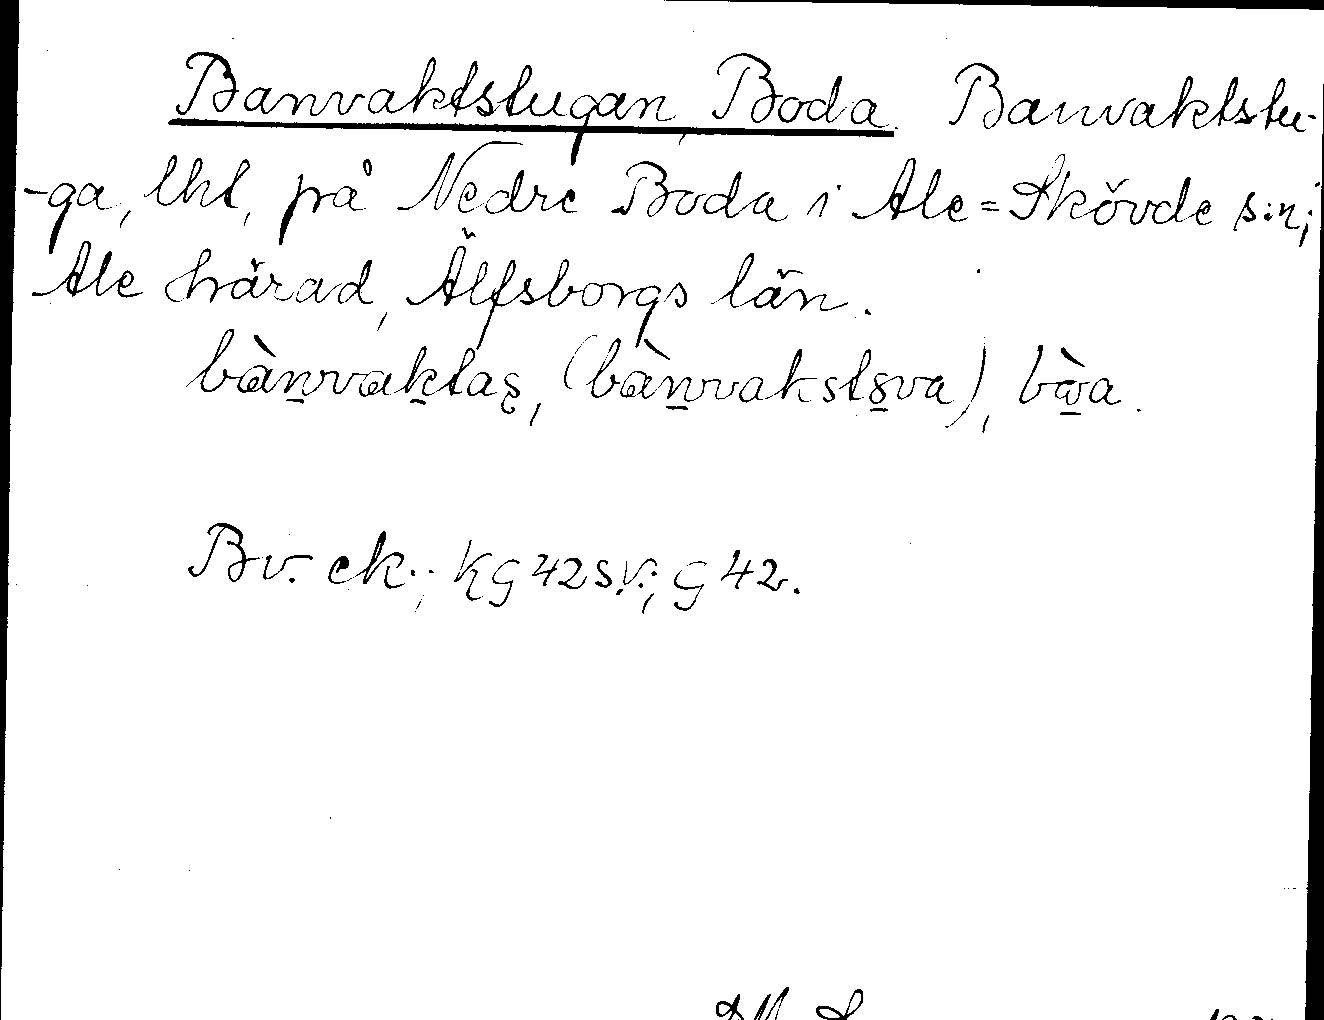 Banvaktstugan, Boda. Banvaktstu-
-ga, lht, på Nedre Boda i Ale=Skövde s:n;
Ale härad, Älfsborgs län.
bànvaktas, (bànvakstsva), bùa.
Bv. ek.; KG42SV.; G42.